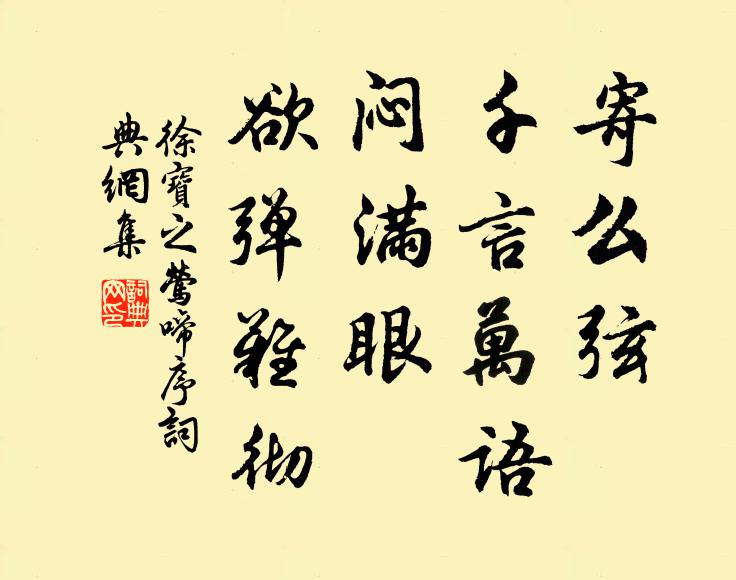 寄么弦
千言萬語
闷满眼
欲弹難彻
徐寶之鶯啼序詞
典網集
詞典网印